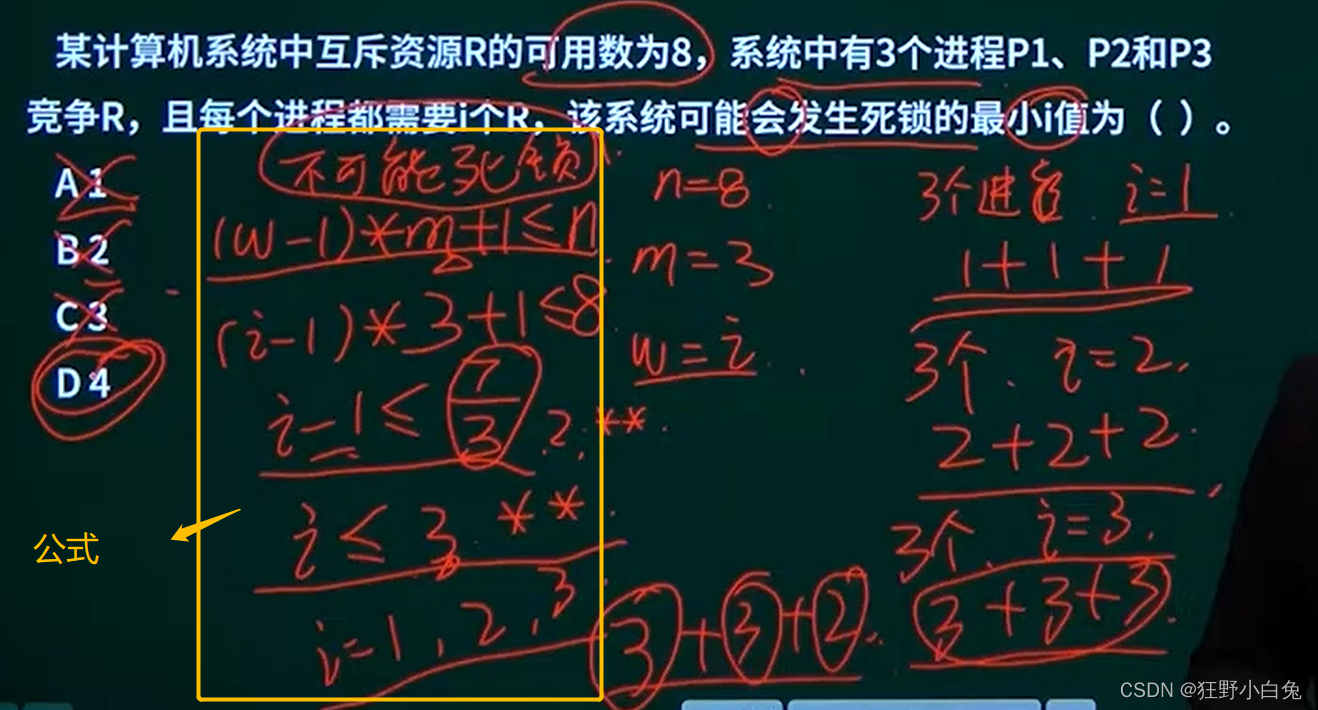 某计算机系统中互斥资源R的可用数为8，系统中有3个进程P1、P2和P3
竞争R，且每个进程都需要i个R，该系统可能会发生死锁的最小i值为（ ）。
A 1
B 2
C 3
D 4
不可能死锁
(w-1)*m+1≤n
(i-1)*3+1≤8
i-1≤7/3 2.**
i≤3 **
i=1,2,3
公式
n=8
m=3
w=i
3+3+2
3个进程 i=1
1+1+1
3个 i=2
2+2+2
3个 i=3
3+3+3
CSDN @狂野小白兔